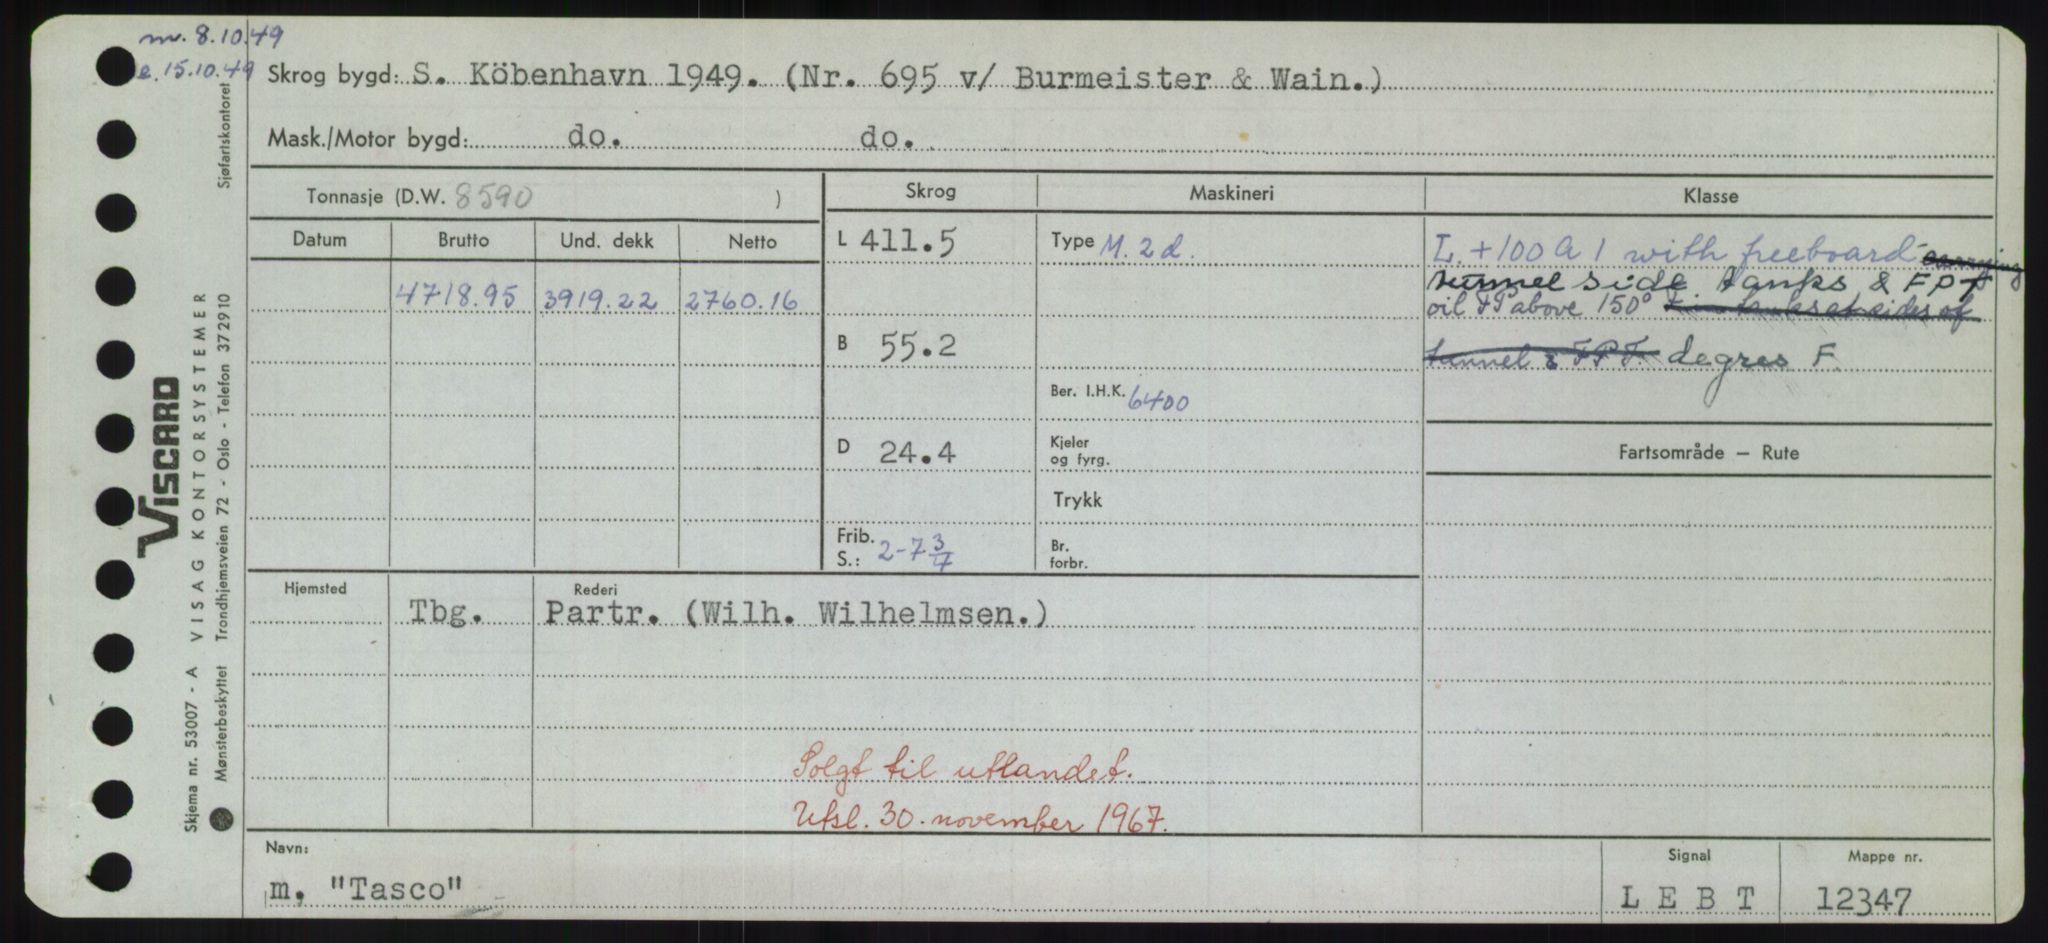 nv. 8.10.49
e. 15.10.49
Skrog bygd: S. Köbenhavn 1949. (Nr. 695 v/ Burmeister & Wain.)
Mask./Motor bygd: do. do.
Tonnasje (D.W. 8590 )
Skrog Maskineri Klasse
Datum Brutto Und. dekk Netto
L 411.5 Type M. 2 d. L. +100 A 1 with freeboard carrying
tunnel side tanks & F P T
4718.95 3919.22 2760.16
oil FP above 150° tanks at sides of
B 55.2 tunnel & F P T. degres F.
Ber. I.H.K. 6400
D 24.4 Kjeler og fyrg.
Fartsområde — Rute
Trykk
Frib. S.: 2-7 3/7 Br. forbr.
Hjemsted Rederi
Tbg. Partr. (Wilh. Wilhelmsen.)
Solgt til utlandet.
Utsl. 30. november 1967.
Navn: Signal Mappe nr.
m. "Tasco" L E B T 12347
VISCARD
Skjema nr. 53007 - A VISAG KONTORSYSTEMER
Mønsterbeskyttet Trondhjemsveien 72 - Oslo - Telefon 372910 Sjøfartskontoret